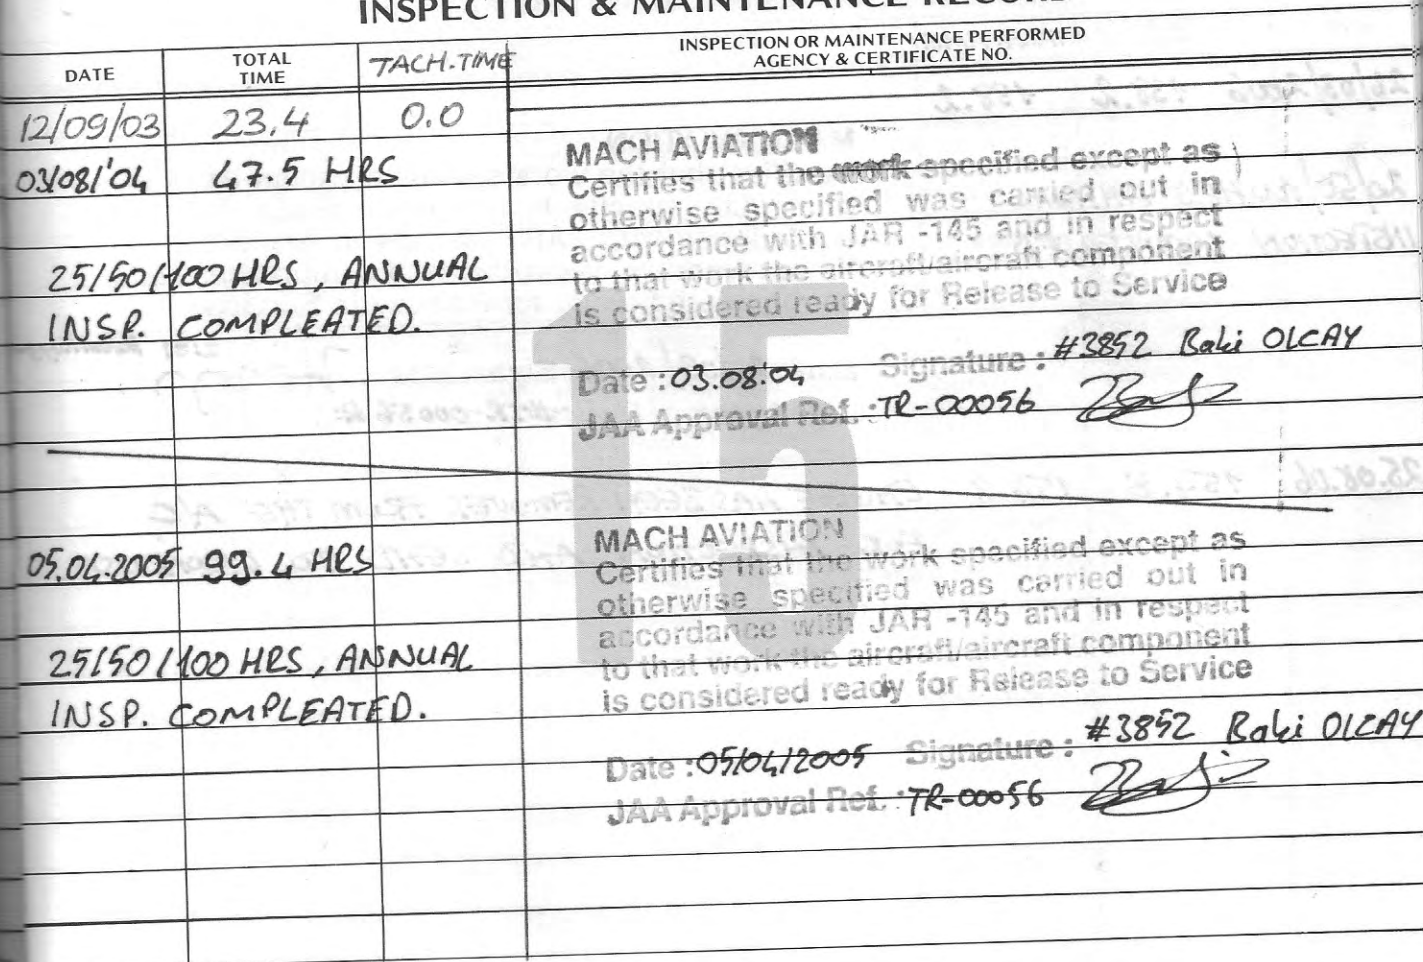 INSPECTION & MAINTENANCE RECORD
DATE TOTAL TIME TACH.TIME INSPECTION OR MAINTENANCE PERFORMED AGENCY & CERTIFICATE NO.
12/09/03 23.4 0.0
03/08/'04 47.5 HRS
MACH AVIATION
Certifies that the work specified except as
otherwise specified was carried out in
accordance with JAR -145 and in respect
to that work the aircraft/aircraft component
is considered ready for Release to Service
25/50/100 HRS, ANNUAL
INSP. COMPLEATED.
Date : 03.08.'04 Signature : #3852 Baki OLCAY
JAA Approval Ref. : TR-00056
15
05.04.2005 99.4 HRS
MACH AVIATION
Certifies that the work specified except as
otherwise specified was carried out in
accordance with JAR -145 and in respect
to that work the aircraft/aircraft component
is considered ready for Release to Service
25/50/100 HRS, ANNUAL
INSP. COMPLEATED.
Date : 05/04/2005 Signature : #3852 Baki OLCAY
JAA Approval Ref. : TR-00056